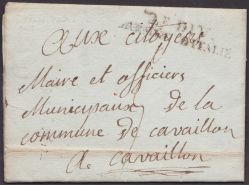 aux citoyens
Maire et officiers
Municipaux de la
commune de cavaillon
a cavaillon